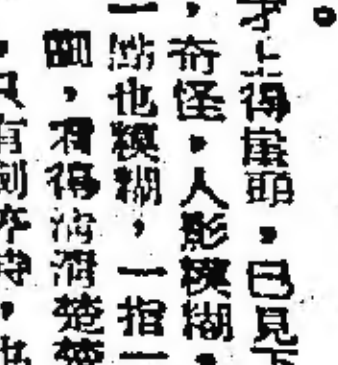 。
才上得崖頭,已見下
,奇怪,人影模糊,
一點也模糊,一指一
劃,看得清清楚楚
,只有刻在詩,也